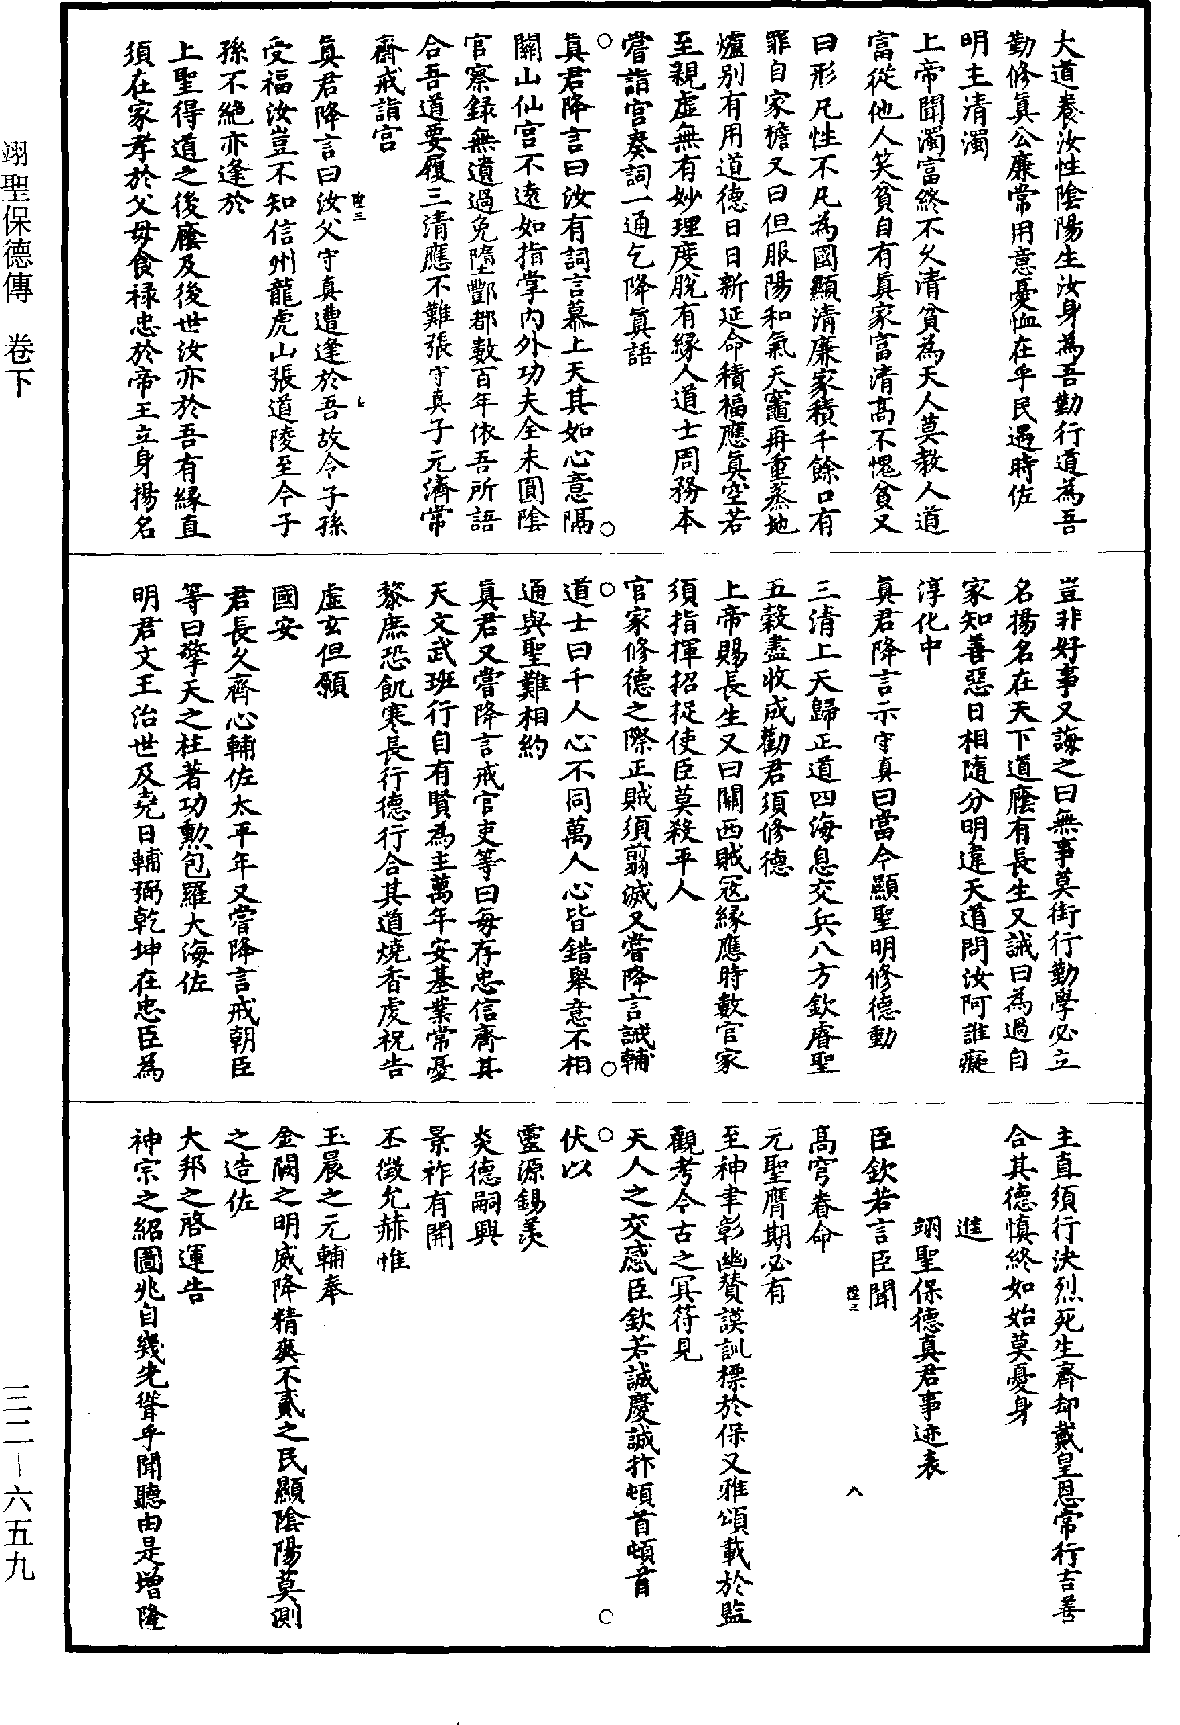 大道養汝性陰陽生汝身為吾勤行道為吾
勤修真公廉常用意憂恤在乎民遇時佐
明主清濁
上帝聞濁富終不久清貧為天人莫教人道
富從他人笑貧自有真家富清高不愧貧又
曰形凡性不凡為國顯清廉家積千餘口有
罪自家擔又曰但服陽和氣天竈再重蒸地
爐別有用道德日日新延命積福應真空若
至親虛無有妙理度脫有緣人道士周務本
嘗詣宮奏詞一通乞降真語
真君降言曰汝有詞言慕上天其如心意隔
關山仙宮不遠如指掌內外功夫全未圓陰
官察錄無遺過免墮酆都數百年依吾所語
合吾道要履三清應不難張守真子元濟常
齋戒詣宮
真君降言曰汝父守真遭逢於吾故令子孫
受福汝豈不知信州龍虎山張道陵至今子
孫不絕亦逢於
上聖得道之後廕及後世汝亦於吾有緣直
須在家孝於父母食祿忠於帝王立身揚名
豈非好事又誨之曰無事莫街行勤學必立
名揚名在天下道廕有長生又誡曰為過自
家知善惡日相隨分明違天道問汝阿誰癡
淳化中
真君降言示守真曰當今顯聖明修德動
三清上天歸正道四海息交兵八方欽睿聖
五穀盡收成勸君須修德
上帝賜長生又曰關西賊寇緣應時數官家
須指揮招捉使臣莫殺平人
官家修德之際正賊須翦滅又嘗降言誡輔
道士曰千人心不同萬人心皆錯舉意不相
通與聖難相約
真君又嘗降言戒官吏等曰每存忠信齋其
天文武班行自有賢為主萬年安基業常憂
黎庶恐飢寒長行德行合其道燒香虔祝告
虛玄但願
國安
君長久齊心輔佐太平年又嘗降言戒朝臣
等曰擎天之柱著功勳包羅大海佐
明君文王治世及堯日輔弼乾坤在忠臣為
主直須行決烈死生齊却戴皇恩常行吉善
合其德慎終如始莫憂身
進
翊聖保德真君事迹表
臣欽若言臣聞
高穹眷命
元聖膺期必有
至神聿彰幽贊謨訓標於保乂雅頌載於監
觀考今古之冥符見
天人之交感臣欽若誠慶誠抃頓首頓首
伏以
靈源錫羨
炎德嗣興
景祚有開
丕徵允赫惟
玉晨之元輔奉
金闕之明威降精爽不貳之民顯陰陽莫測
之造佐
大邦之啓運告
神宗之紹圖兆自幾先聳乎聞聽由是增隆
翊聖保德傳 卷下
三二—六五九